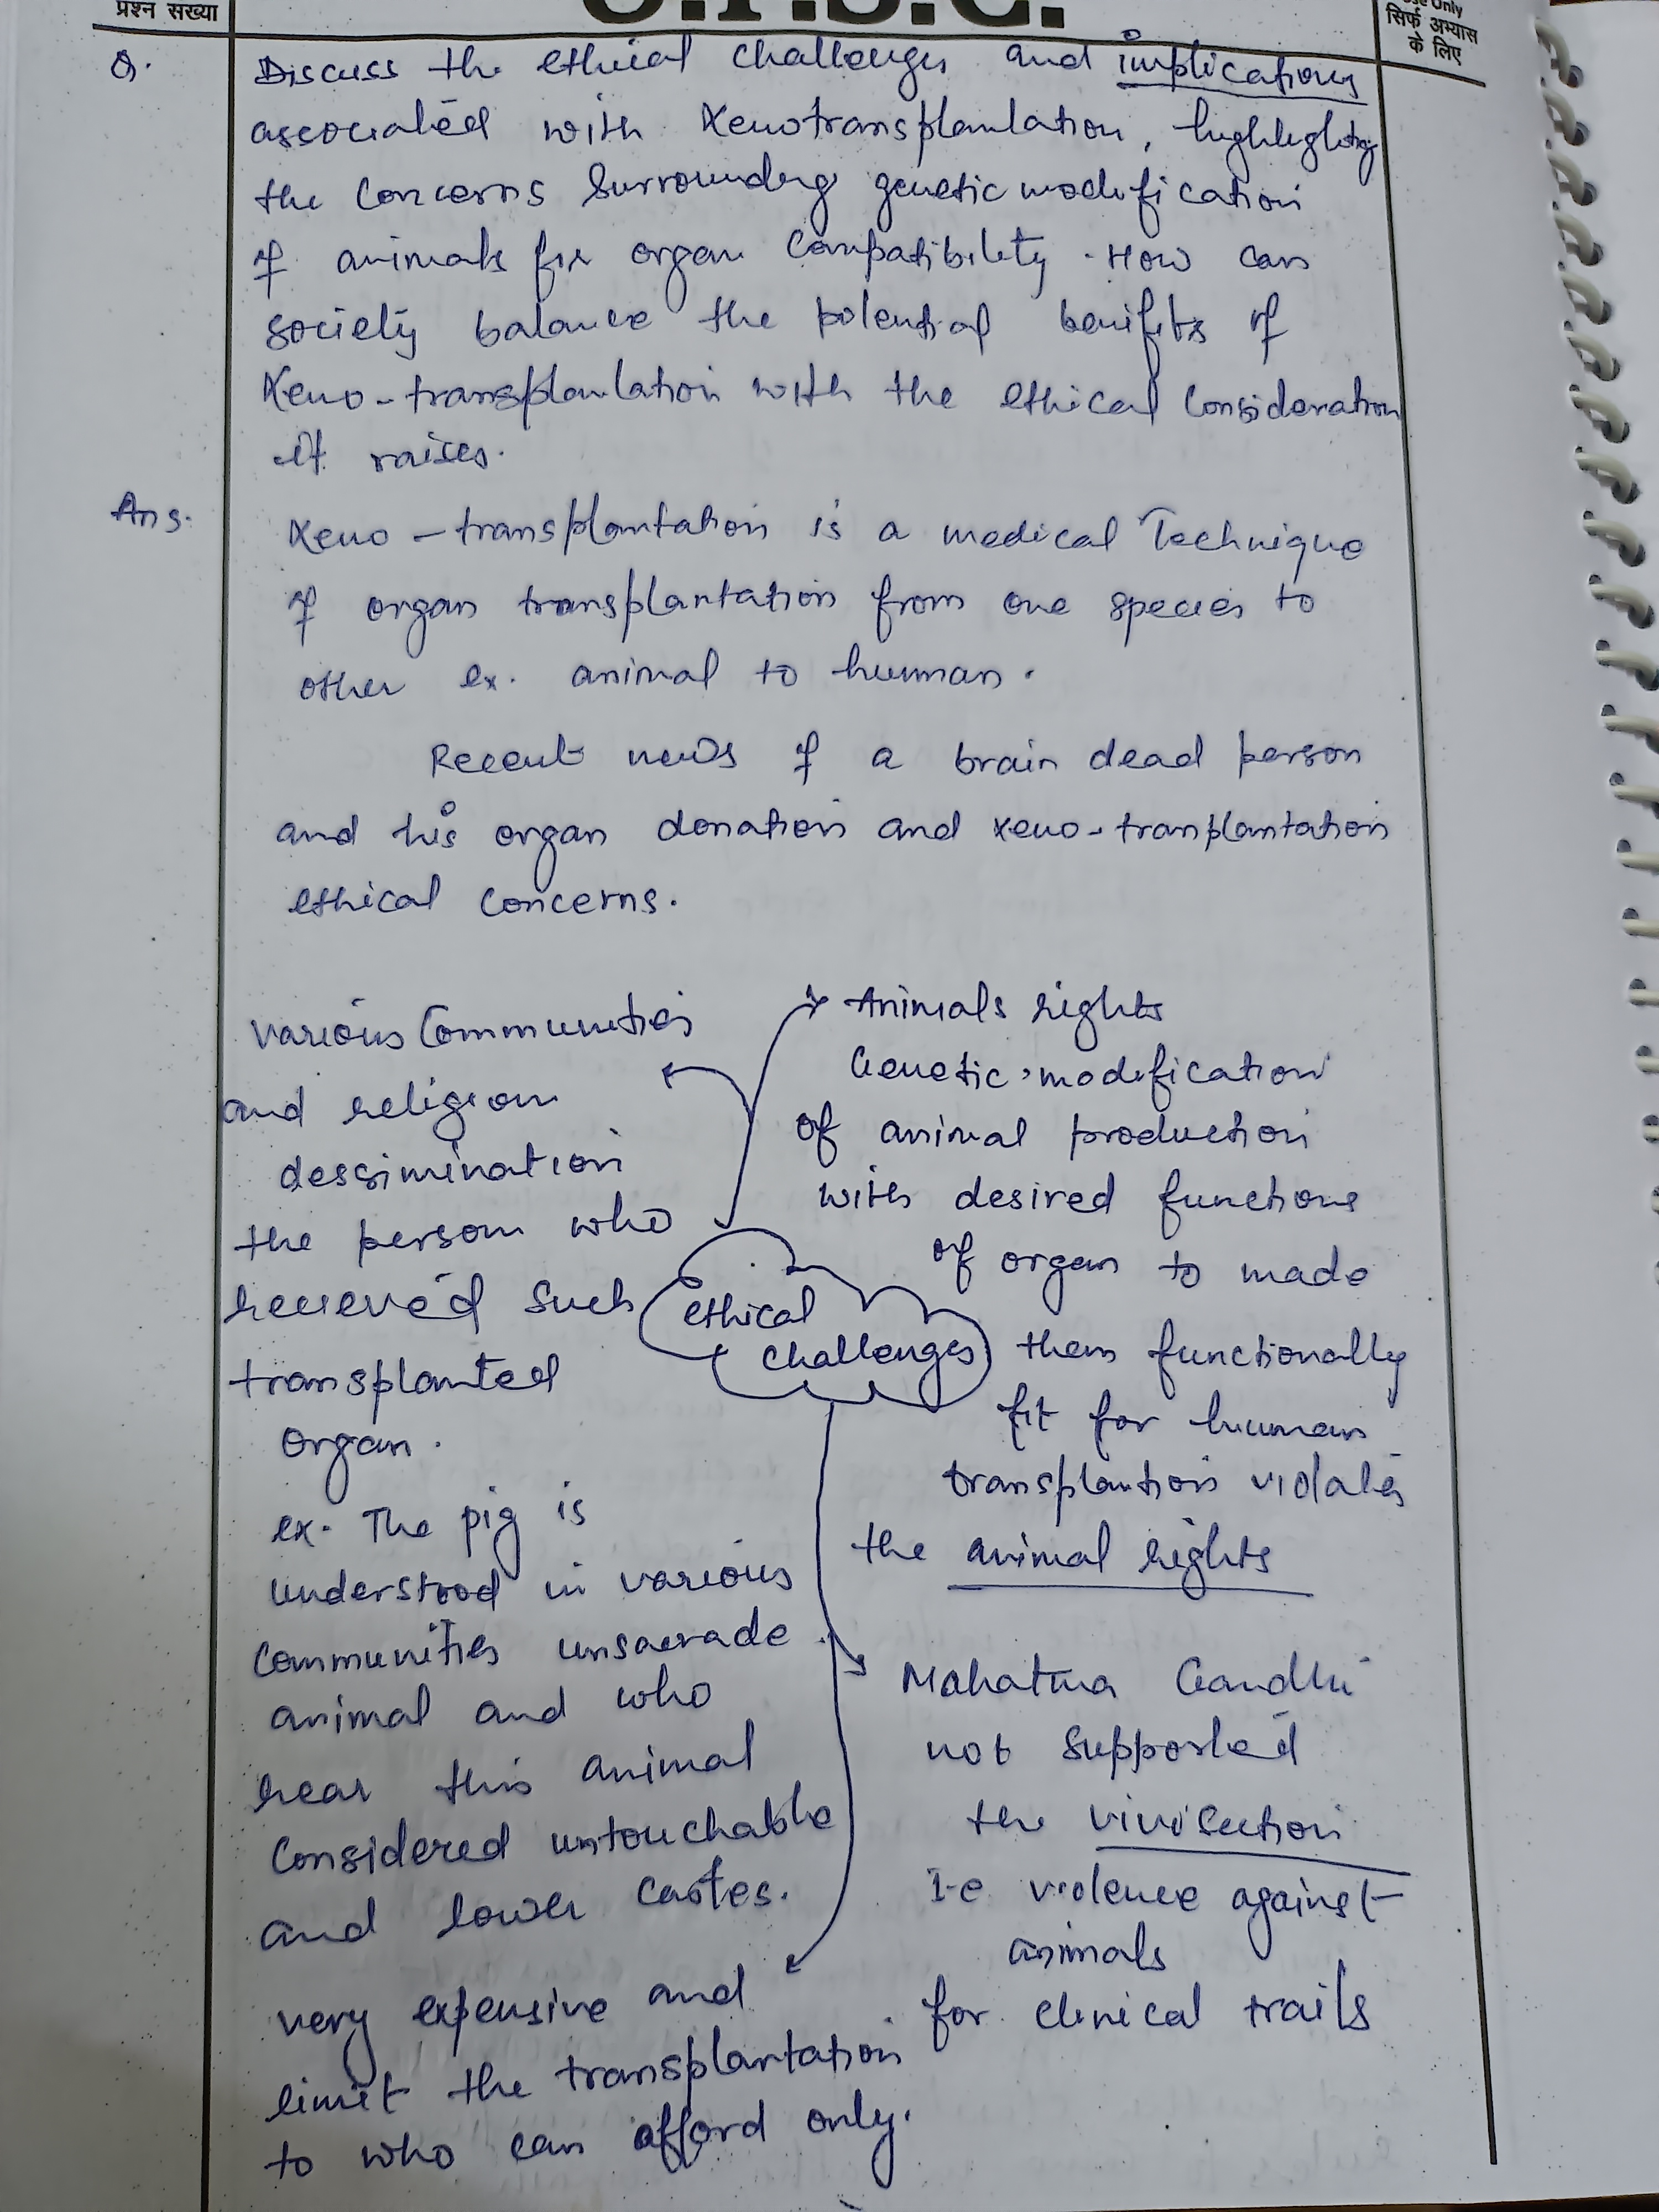 प्रश्न संख्या
U.P.S.C.
Use Only
सिर्फ अभ्यास
के लिए
Q.
Discuss the ethical challenges and implications
associated with Xenotransplantation, highlighting
the Concerns Surrounding genetic modification
of animals for organ Compatibility. How can
society balance the potential benifits of
Xeno-transplantation with the ethical Consideration
it raises.
Ans.
Xeno-transplantation is a medical Technique
of organ transplantation from one species to
other ex. animal to human.
Recent news of a brain dead person
and his organ donation and xeno-tranplantation
ethical Concerns.
ethical
challenges
Animals rights
Genetic modification
of animal production
with desired functions
of organ to made
them functionally
fit for human
transplantion violates
the animal rights
various Communities
and religion
dessimination
the person who
recieved such
transplanted
organ.
ex. The pig is
understood in various
Communities unsacrade
animal and who
rear this animal
Considered untouchable
and lower castes.
Mahatma Gandhi
not Supported
the vivisection
i-e violence against
animals
for clinical trails
very expensive and
limit the transplantation
to who can afford only.